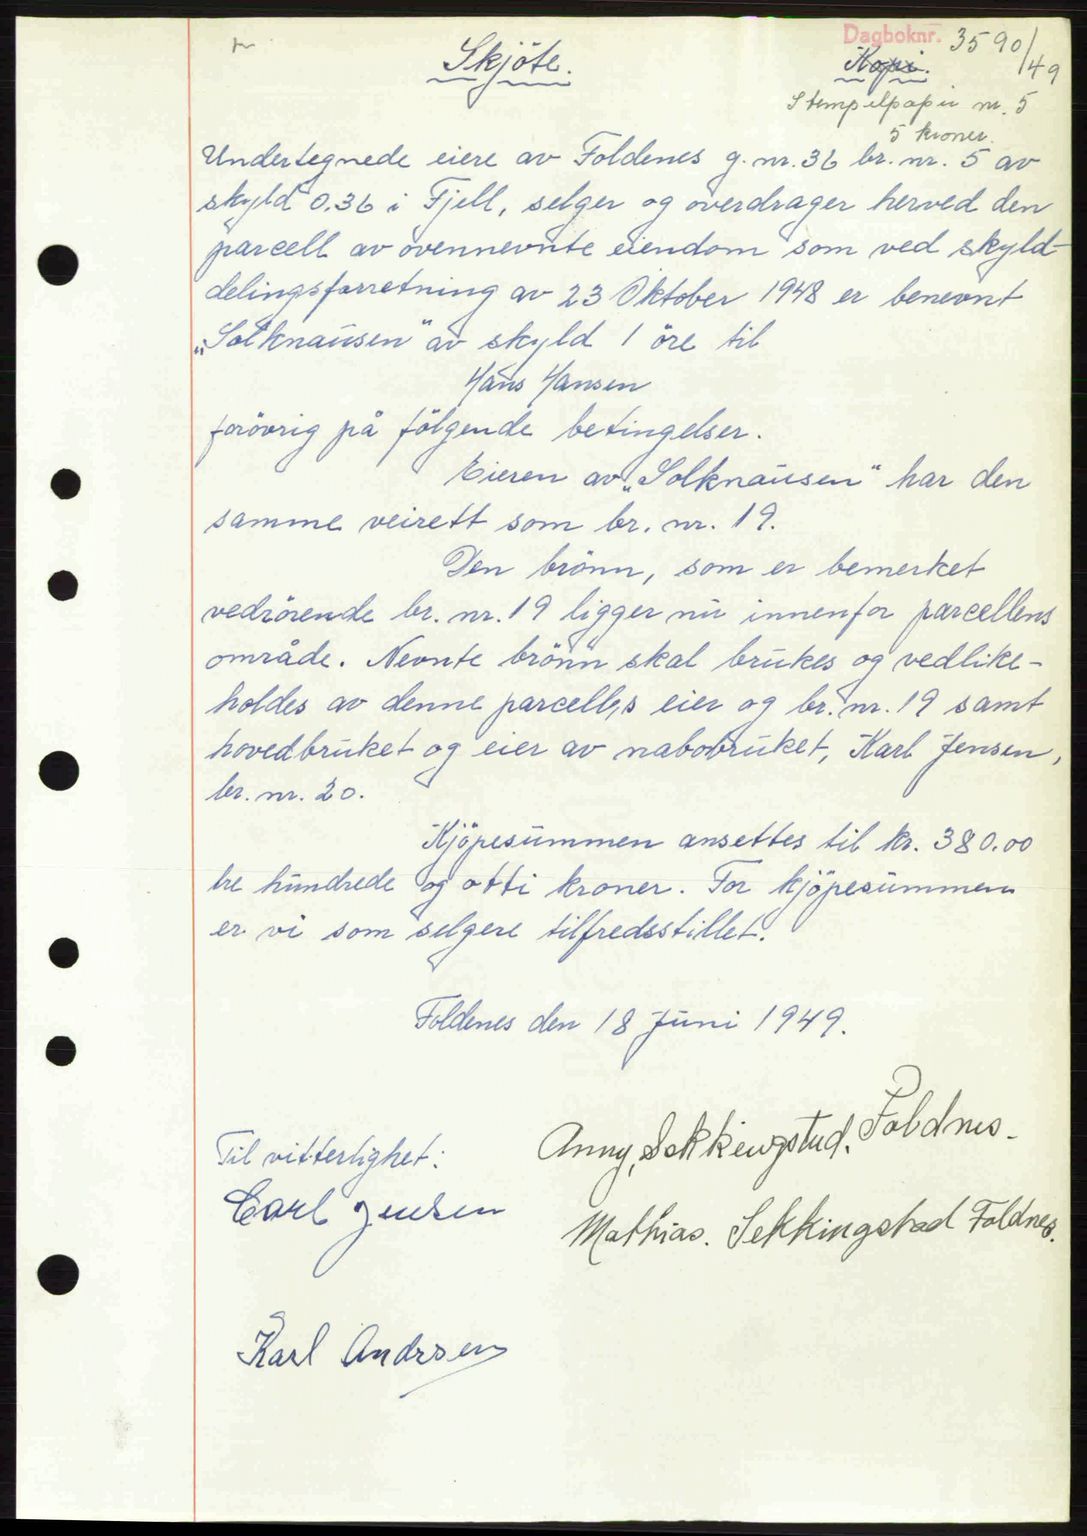 Dagboknr. 3590/49
Skjöte. Kopi.
Stempelpapir nr. 5
5 kroner.
Undertegnede eiere av Foldenes g. nr. 36 br. nr. 5 av
skyld 0.36 i Fjell, selger og överdrager herved den
parcell av ovennevnte eiendom som ved skyld-
delingsforretning av 23 Oktober 1948 er benevnt
„Solknausen" av skyld 1 öre til
Hans Hansen
forövrig på fölgende betingelser.
Eieren av „Solknausen" har den
samme veirett som br. nr. 19.
Den brönn, som er bemerket
vedrörende br. nr. 19 ligger nu innenfor parcellens
område. Nevnte brönn skal brukes og vedlike-
holdes av denne parcells eier og br. nr. 19 samt
hovedbruket og eier av nabobruket, Karl Jensen,
br. nr. 20.
Kjöpesummen ansettes til kr. 380.00
tre hundrede og otti kroner. For kjöpesummen
er vi som selgere tilfredsstillet.
Foldenes den 18 Juni 1949.
Anny, Sekkingstad. Foldnes.
Til vitterlighet:
Carl Jensen
Mathias. Sekkingstad Foldnes.
Karl Andrsen